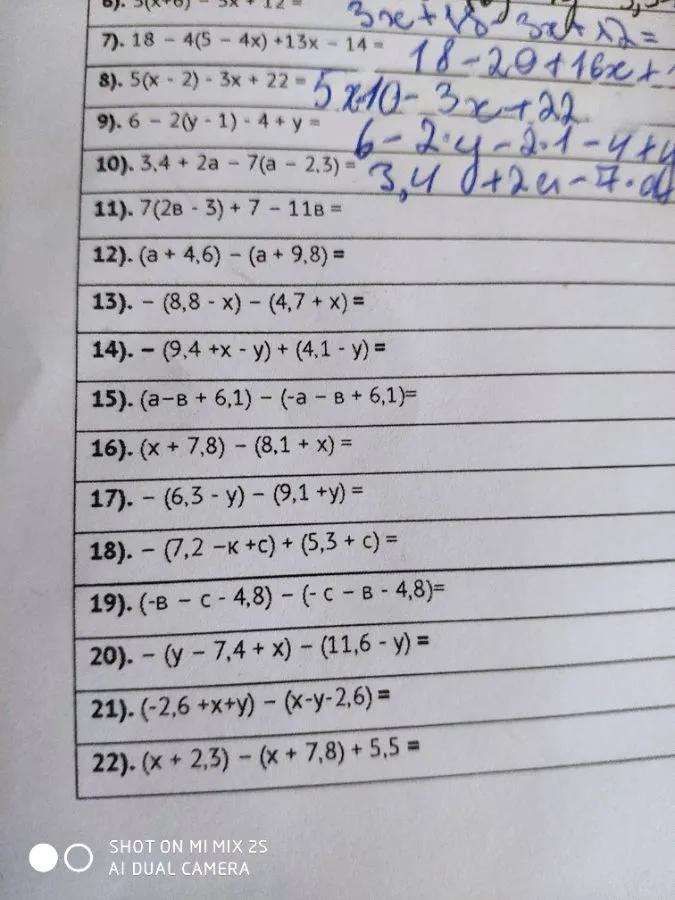 6). 3(x+6) – 3x + 12 = 3x+18-3x+12=
7). 18 – 4(5 – 4x) +13x – 14 = 18-20+16x+
8). 5(x - 2) - 3x + 22 = 5x-10-3x+22
9). 6 – 2(y - 1) - 4 + y = 6-2·y-2·1-4+y
10). 3,4 + 2a – 7(a – 2,3) = 3,4+2a-7·a
11). 7(2в - 3) + 7 – 11в =
12). (a + 4,6) – (a + 9,8) =
13). – (8,8 - x) – (4,7 + x) =
14). – (9,4 +x - y) + (4,1 - y) =
15). (a–в + 6,1) – (-a – в + 6,1)=
16). (x + 7,8) – (8,1 + x) =
17). – (6,3 - y) – (9,1 +y) =
18). – (7,2 –к +c) + (5,3 + c) =
19). (-в – c - 4,8) – (- c – в - 4,8)=
20). – (y – 7,4 + x) – (11,6 - y) =
21). (-2,6 +x+y) – (x-y-2,6) =
22). (x + 2,3) – (x + 7,8) + 5,5 =
SHOT ON MI MIX 2S
AI DUAL CAMERA